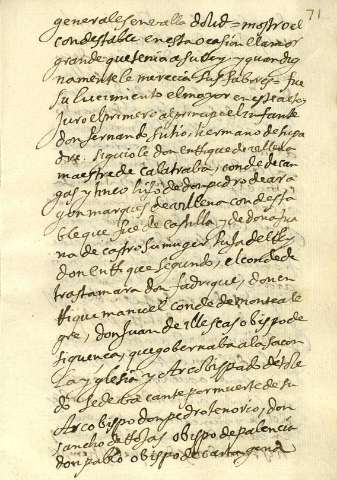 71
generales en valladolid = mostro el
condestable en esta ocasion el amor
grande que tenia a su Rey, y quan dig
namente le mereçia sus fabores = fue
su lucimiento el mayor en este acto,
juro el primero al principe el Infante
don fernando su tio, hermano de su pa
dre, siguiole don enrrique de villena
maestre de calatraba, conde de can
gas y tineo hijo de don pedro de ara
gon marques de villena condesta
ble que fue de castilla y de doña jua
na de castro su muger hija del Rey
don enrrique segundo, el conde de
trastamara don fadrique, don en
rrique manuel conde de monte ale
gre, don Juan de illescas obispo de
siguença, que gobernaba a la saçon
la yglesia y Arcobispado de tole
do sede bacante por muerte de su
Arcobispo don pedro tenorio, don
sancho de Rojas obispo de palencia
don pablo obispo de cartagena